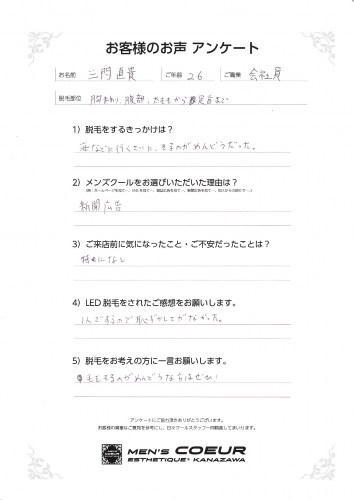 お客様のお声 アンケート
お名前 三門直貴 ご年齢 26 ご職業 会社員
脱毛部位 胸まわり、腹部、太ももから足首まで
1）脱毛をするきっかけは？
海などに行くさいに、そるのがめんどうだった。
2）メンズクールをお選びいただいた理由は？
新聞広告
3）ご来店前に気になったこと・ご不安だったことは？
特になし
4）LED脱毛をされたご感想をお願いします。
1人でするので恥ずかしさがなかった。
5）脱毛をお考えの方に一言お願いします。
毛をそるのがめんどうな方はぜひ!
アンケートにご協力頂きありがとうございます。
お客様の貴重なご意見を参考にし、日々クールスタッフ一同精進してまいります。
MEN'S COEUR
ESTHETIQUE KANAZAWA